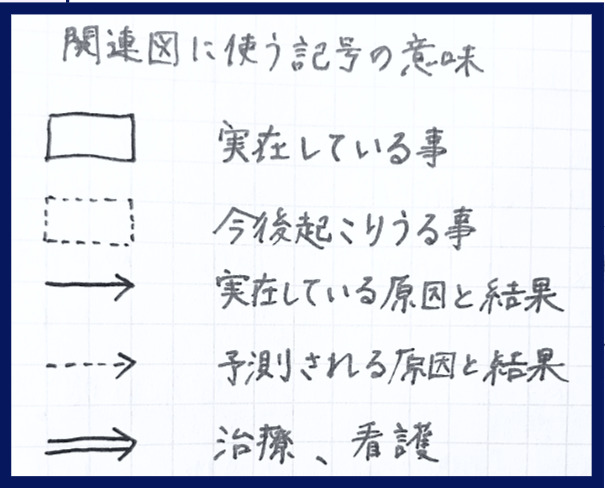 関連図に使う記号の意味
実在している事
今後起こりうる事
実在している原因と結果
予測される原因と結果
治療、看護